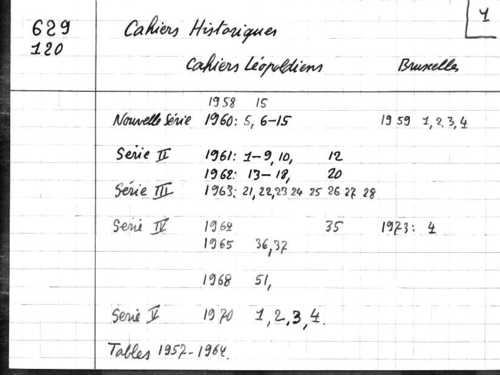 1
629 Cahiers Historiques
120
Cahiers Léopoldiens Bruxelles
1958 15
Nouvelle Série 1960: 5, 6-15 1959 1, 2, 3, 4
Série II 1961: 1-9, 10, 12
1962: 13-18, 20
Série III 1963: 21, 22, 23 24 25 26 27 28
Série IV 1964 35 1973: 4
1965 36, 37
1968 51,
Serie V 1970 1, 2, 3, 4.
Tables 1957-1964.